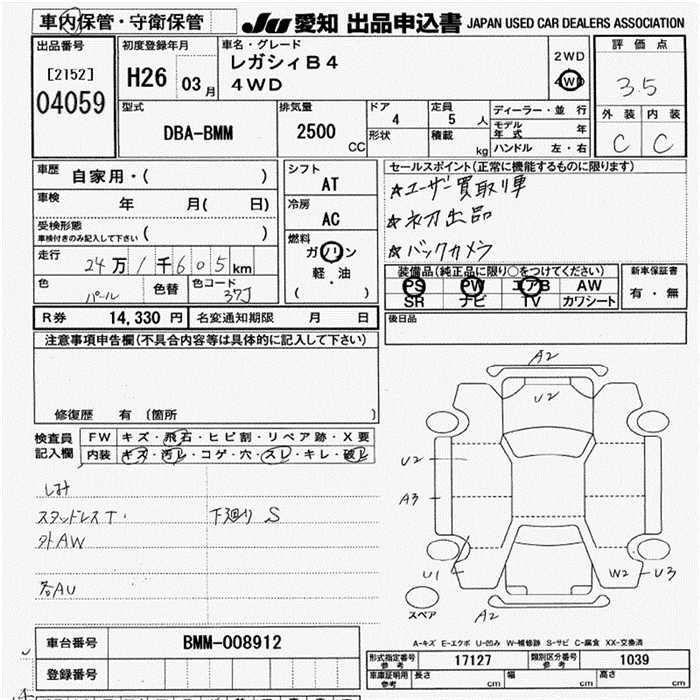 車内保管・守衛保管
JU 愛知 出品申込書 JAPAN USED CAR DEALERS ASSOCIATION
出品番号
[2152]
04059
初度登録年月
H26 03月
車名・グレード
レガシィB4
4WD
2WD
4WD
評価点
3.5
外装 内装
C C
型式
DBA-BMM
排気量
2500
CC
ドア
4
形状
定員
5 人
積載
kg
ディーラー・並行
モデル年式 年
ハンドル 左・右
車歴
自家用・( )
車検
年 月( 日)
受検形態
車検付きのみ記入して下さい ( )
走行
24万1千605km
色
パール
色替
色コード
37J
シフト
AT
冷房
AC
燃料
ガソリン
軽・油
( )
セールスポイント(正常に機能するものに限ります)
☆ユーザー買取り車
☆初出品
☆バックカメラ
装備品(純正品に限り○をつけてください)
PS PW エアB AW
SR ナビ TV カワシート
新車保証書
有・無
R券 14,330円 名変通知期限 月 日
後日品
注意事項申告欄(不具合内容等は具体的に記入して下さい)
修復歴 有 〔箇所 〕
検査員
記入欄
FW キズ・飛石・ヒビ割・リペア跡・X要
内装 キズ・汚レ・コゲ・穴・スレ・キレ・破レ
シミ
スタッドレスT・ 下廻り S
外AW
各AU
A2
U2
U2
A3
U1
W2 U3
スペア
A2
A-キズ E-エクボ U-凹み W-補修跡 S-サビ C-腐食 XX-交換済
車台番号 BMM-008912
登録番号
形式指定番号 参考 17127 類別区分番号 参考 1039
車庫証明用 参考 長さ cm 幅 cm 高さ cm